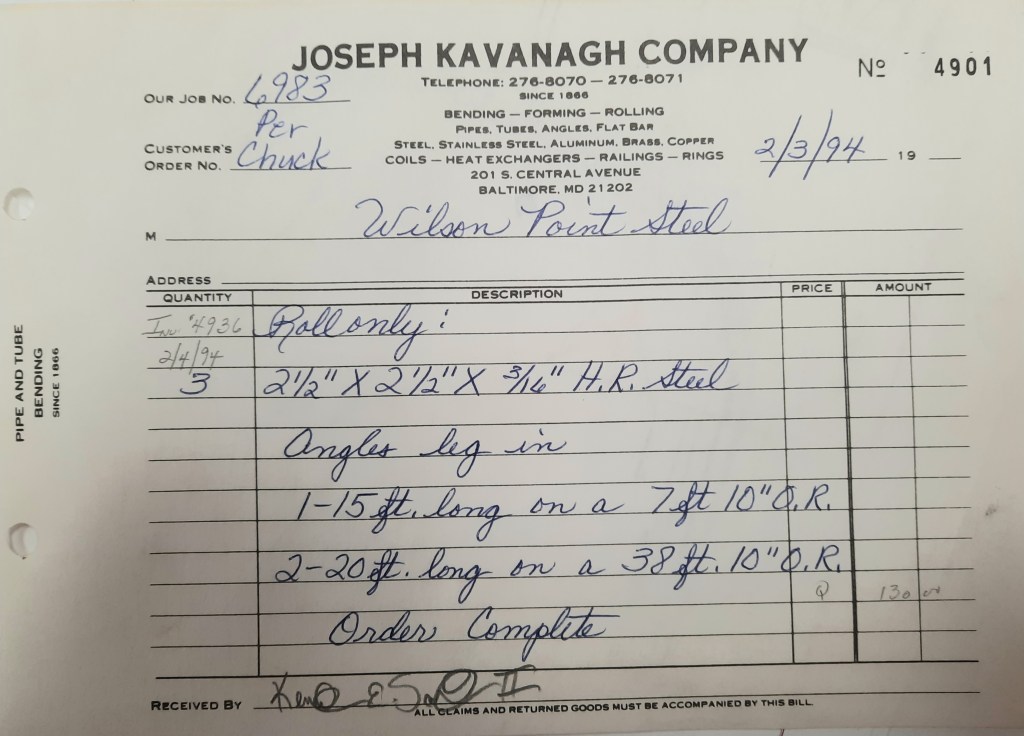 JOSEPH KAVANAGH COMPANY
Nº 4901
TELEPHONE: 276-8070 — 276-8071
SINCE 1866
OUR JOB NO. 6983
BENDING — FORMING — ROLLING
PIPES, TUBES, ANGLES, FLAT BAR
STEEL, STAINLESS STEEL, ALUMINUM, BRASS, COPPER
COILS — HEAT EXCHANGERS — RAILINGS — RINGS
201 S. CENTRAL AVENUE
BALTIMORE, MD 21202
Per
CUSTOMER'S
ORDER NO. Chuck
2/3/94 19
M Wilson Point Steel
ADDRESS
QUANTITY DESCRIPTION PRICE AMOUNT
Inv #4936 Roll only:
2/4/94
3 2 1/2" X 2 1/2" X 3/16" H.R. Steel
Angles leg in
1-15 ft. long on a 7 ft 10" O.R.
2-20 ft. long on a 38 ft. 10" O.R.
Q 130 00
Order Complete
RECEIVED BY
ALL CLAIMS AND RETURNED GOODS MUST BE ACCOMPANIED BY THIS BILL
PIPE AND TUBE
BENDING
SINCE 1866